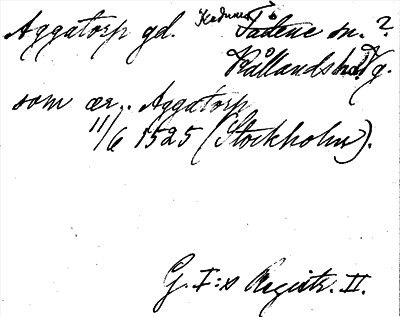 Aggatorp gd. Kedums Tådene sn.?
Kållandshd Vg.
som ær, Aggatorp
11/6 1525 (Stockholm).
G. I:s Registr. II.